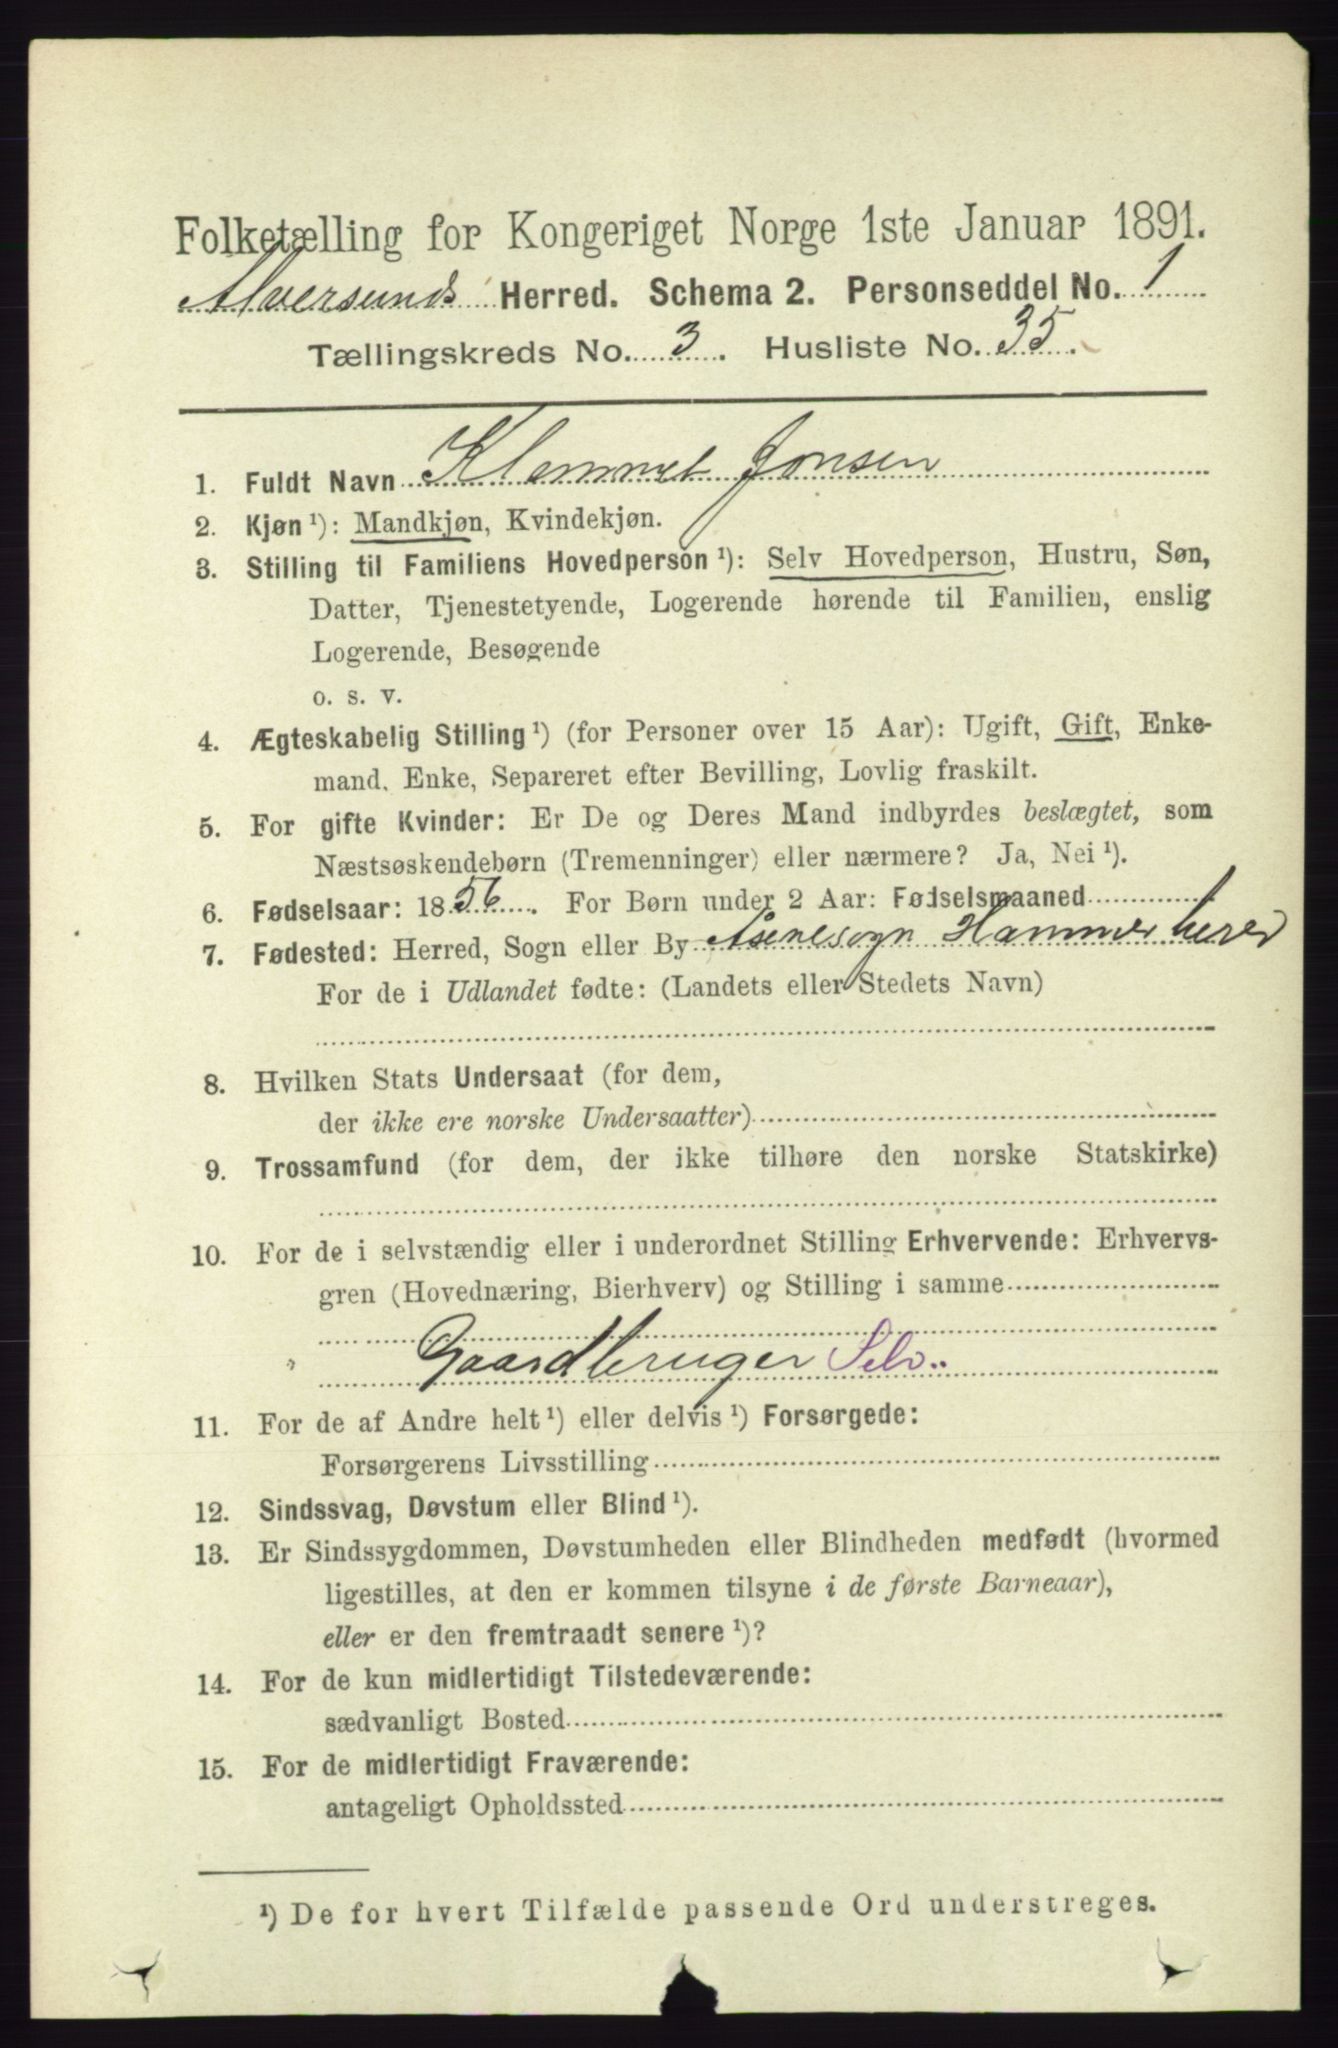 Folketælling for Kongeriget Norge 1ste Januar 1891.
Alversunds Herred. Schema 2. Personseddel No. 1
Tællingskreds No. 3. Husliste No. 35.
1. Fuldt Navn Klemmet Jonsen
2. Kjøn ¹): Mandkjøn, Kvindekjøn.
3. Stilling til Familiens Hovedperson ¹): Selv Hovedperson, Hustru, Søn,
Datter, Tjenestetyende, Logerende hørende til Familien, enslig
Logerende, Besøgende
o. s. v.
4. Ægteskabelig Stilling ¹) (for Personer over 15 Aar): Ugift, Gift, Enke-
mand, Enke, Separeret efter Bevilling, Lovlig fraskilt.
5. For gifte Kvinder: Er De og Deres Mand indbyrdes beslægtet, som
Næstsøskendebørn (Tremenninger) eller nærmere? Ja, Nei ¹).
6. Fødselsaar: 1856. For Børn under 2 Aar: Fødselsmaaned
7. Fødested: Herred, Sogn eller By Asenesogn Hammer herred
For de i Udlandet fødte: (Landets eller Stedets Navn)
8. Hvilken Stats Undersaat (for dem,
der ikke ere norske Undersaatter)
9. Trossamfund (for dem, der ikke tilhøre den norske Statskirke)
10. For de i selvstændig eller i underordnet Stilling Erhvervende: Erhvervs-
gren (Hovednæring, Bierhverv) og Stilling i samme
Gaardbruger Selv..
11. For de af Andre helt ¹) eller delvis ¹) Forsørgede:
Forsørgerens Livsstilling
12. Sindssvag, Døvstum eller Blind ¹).
13. Er Sindssygdommen, Døvstumheden eller Blindheden medfødt (hvormed
ligestilles, at den er kommen tilsyne i de første Barneaar),
eller er den fremtraadt senere ¹)?
14. For de kun midlertidigt Tilstedeværende:
sædvanligt Bosted
15. For de midlertidigt Fraværende:
antageligt Opholdssted
¹) De for hvert Tilfælde passende Ord understreges.